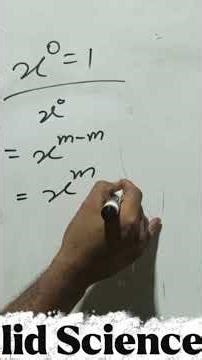 x⁰ = 1
x⁰
= x^{m-m}
= x^m
lid Science